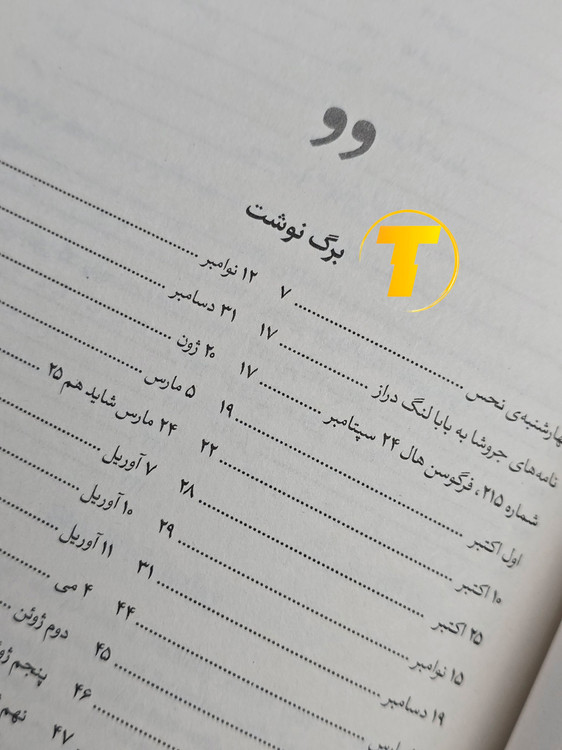 „
برگ نوشت
T
هارشنبه‌ی نحس ........ ۷
نامه‌های جروشا به بابا لنگ دراز ........ ۱۷
شماره ۲۱۵، فرگوسن هال ۲۴ سپتامبر ........ ۱۷
اول اکتبر ........ ۱۹
۱۰ اکتبر ........ ۲۲
۲۵ اکتبر ........ ۲۸
۱۵ نوامبر ........ ۲۹
۱۹ دسامبر ........ ۳۱
........ ۴۴
........ ۴۵
........ ۴۶
۴۷
۱۲ نوامبر ........
۳۱ دسامبر ........
۲۰ ژون ........
۵ مارس ........
۲۴ مارس شاید هم ۲۵ ........
۷ آوریل ........
۱۰ آوریل ........
۱۱ آوریل ........
۴ می ........
دوم ژوئن ........
پنجم
نهم